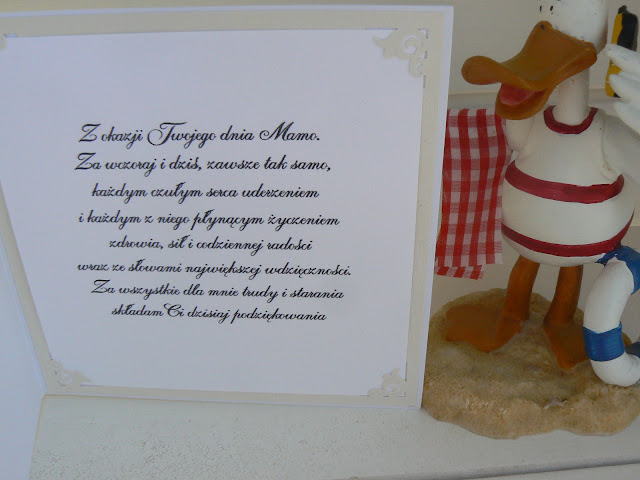 Z okazji Twojego dnia Mamo.
Za wczoraj i dziś, zawsze tak samo,
każdym czułym serca uderzeniem
i każdym z niego płynącym życzeniem
zdrowia, sił i codziennej radości
wraz ze słowami największej wdzięczności.
Za wszystkie dla mnie trudy i starania
składam Ci dzisiaj podziękowania